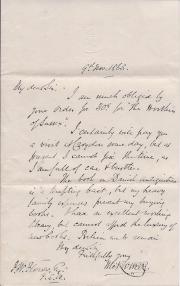 9th Nov. 1865.
My dear Sir,
I am much obliged by
your order for 30/- for "The Worthies
of Sussex".
I certainly will pay you
a visit at Croydon some day, but at
present I cannot find the time, as
I am full of care & bustle.
The book on Danish antiquities
is a tempting bait, but my heavy
family expenses prevent my buying
books. I have an excellent working
library, but cannot afford the luxury of
new books. Believe me to remain
My dear Sir
Faithfully yours
M A Lower